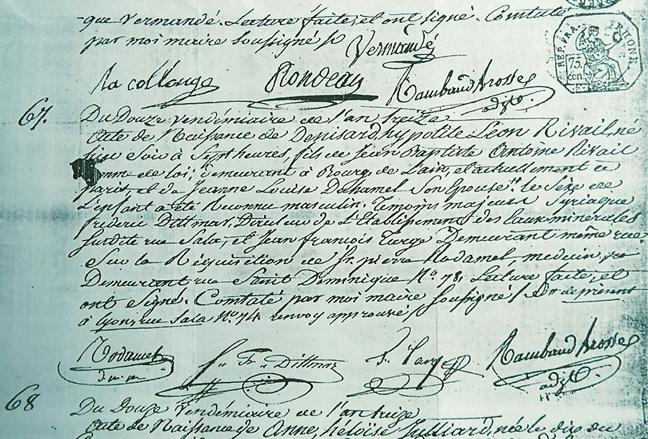 que Vermandé. Lecture faite, et ont signé. Constaté
par moi maire soussigné
Vermandé
REP. FRA. RHONE
75 cen
la collonge Rondeau Rambaud Brosse
adjt.
67. Du Douze Vendémiaire de l'an treize
acte de Naissance de Denisard, hypolite Léon Rivail, né
hier Soir à Sept heures, fils de Jean Baptiste Antoine Rivail
homme de loi, demeurant à Bourg de Lain, actuellement à
paris, et de Jeanne Louise Duhamel Son épouse, le Sexe de
L'enfant a été Reconnu masculin. Temoins majeurs Syriaque
frederic Dittmar, Directeur de L'Etablissement des Eaux minérales
susdite rue Sala, et Jean François Targe Demeurant même rue
Sur la Réquisition de pierre Radamel, medecin,
Demeurant rue Saint Dominique N.º 78, Lecture faite, et
ont signé. Constaté par moi maire soussigné / présent
à Lyon, rue Sala N.º 74 renvoy approuvé
Radamel Fr. Dittmar Rambaud Brosse
d. m. m. adjt.
68 Du Douze Vendémiaire de l'an treize
acte de Naissance de Anne, héloïse Julliard, née le dix du